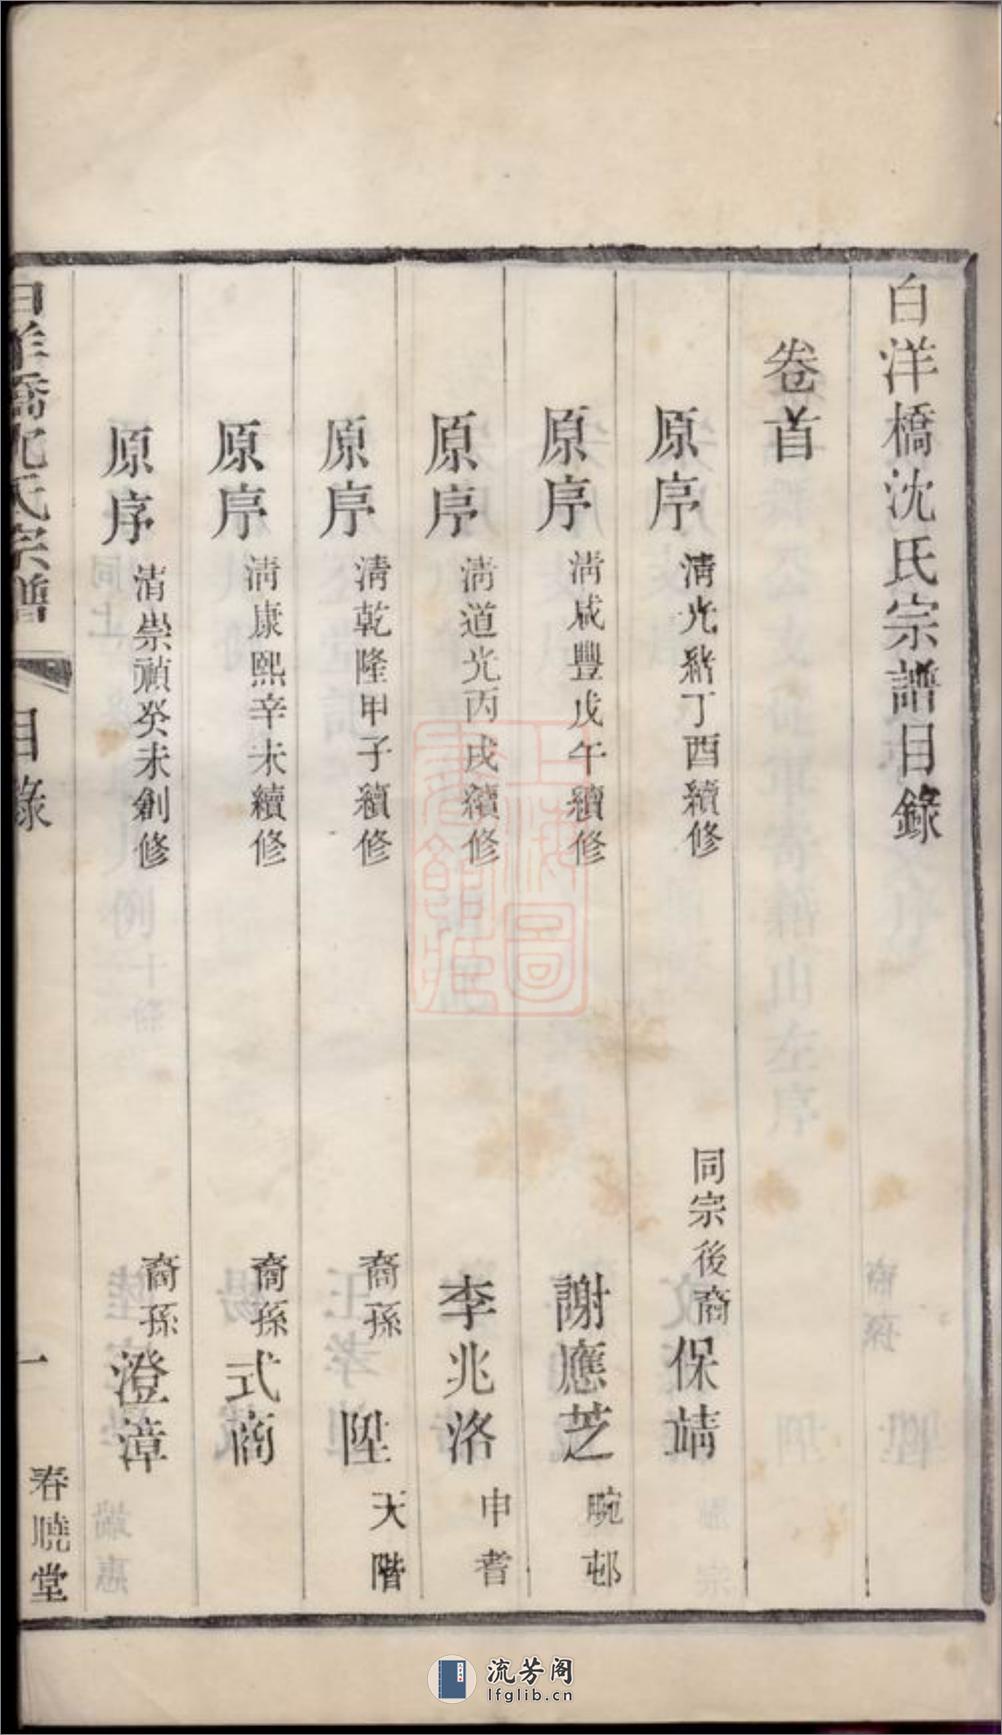 白洋橋沈氏宗譜目錄
卷首
原序 清光緒丁酉續修 同宗後裔 保靖
原序 清咸豐戊午續修 謝應芝 畹邨
原序 清道光丙戌續修 李兆洛 申耆
原序 清乾隆甲子續修 裔孫 陞 天階
原序 清康熙辛未續修 裔孫 式商
原序 清崇禎癸未創修 裔孫 澄漳
白洋橋沈氏宗譜 目錄 一 春曉堂
上海圖書館藏
流芳阁
lfglib.cn